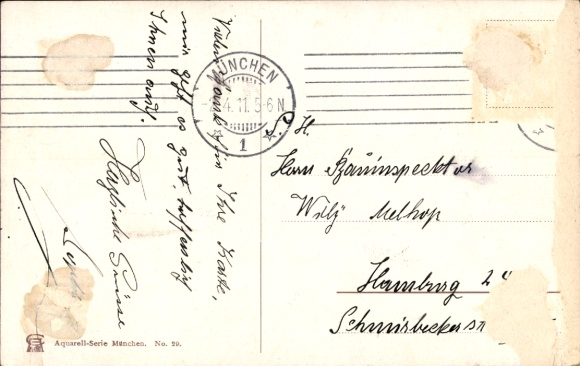 Vielen Dank für Ihre Karte,
mir geht es gut, hoffentlich
Ihnen auch.
Herzliche Grüsse
MÜNCHEN
4.11. 5-6 N
1
S. H.
Herrn Bauinspektor
Willy Melhop
Hamburg 2
Aquarell-Serie München. No. 29.